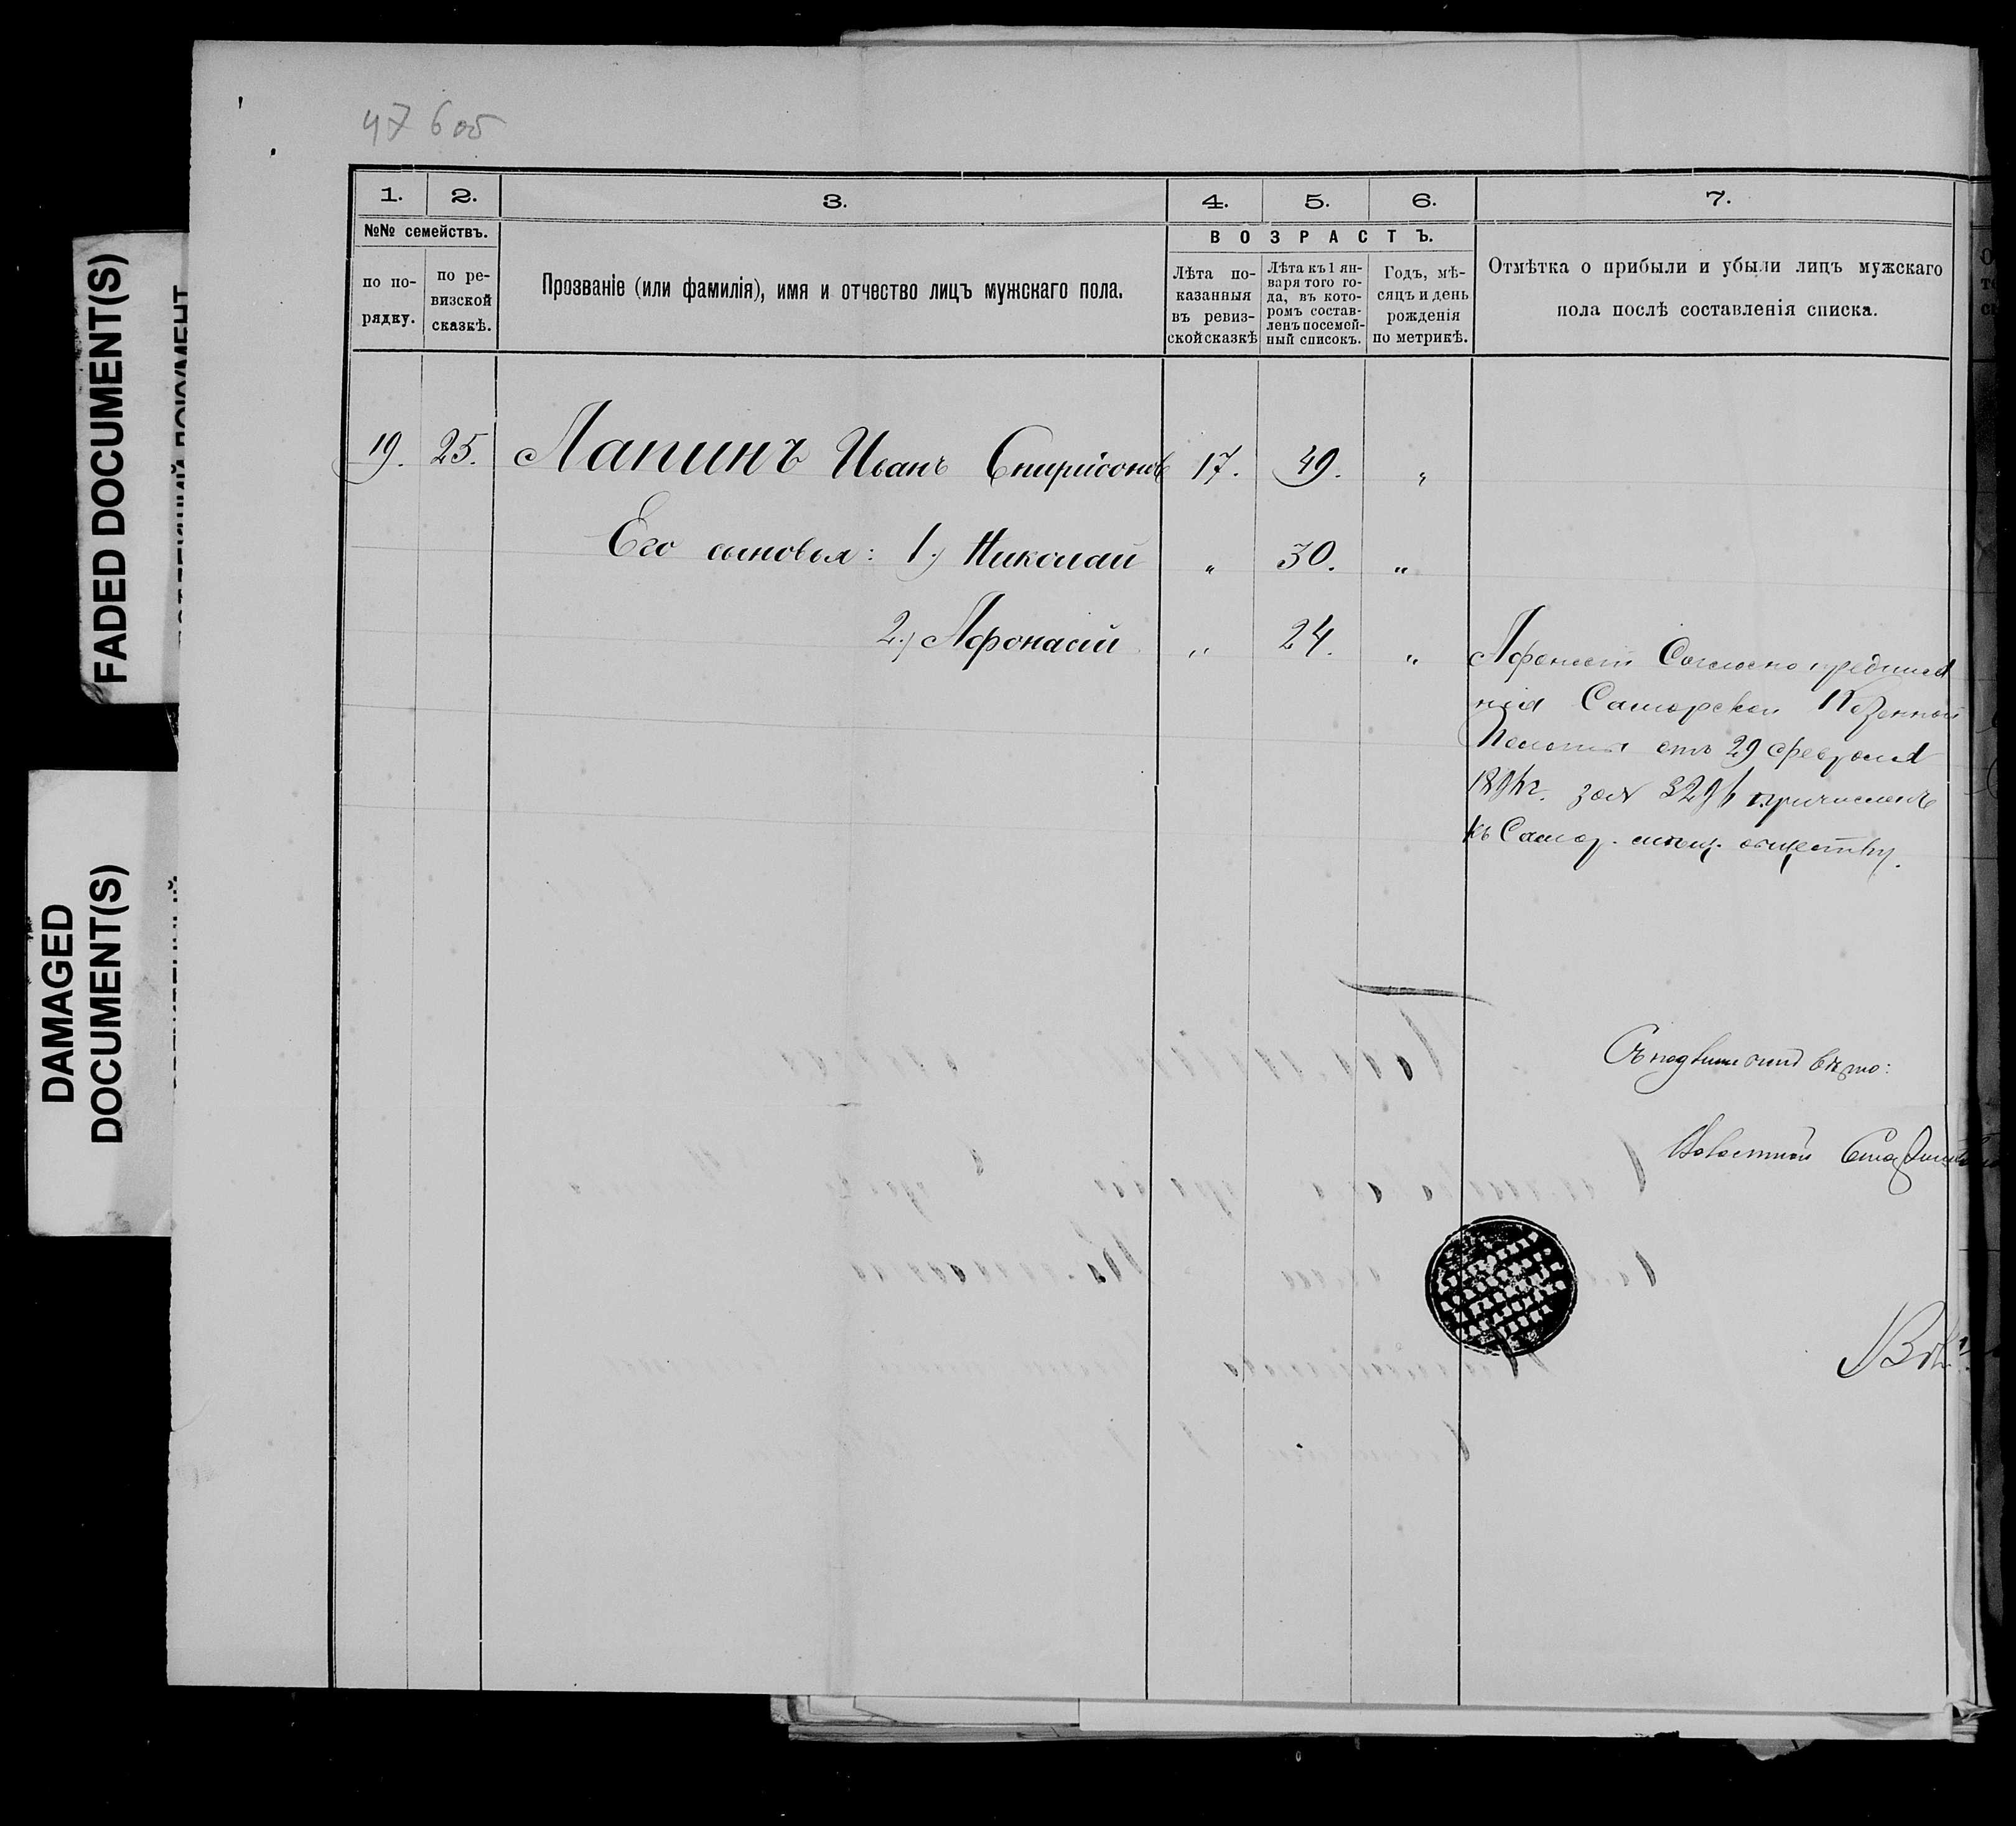 47 6 об
1. 2. 3. 4. 5. 6. 7.
№№ семействъ.
по по-
рядку.
по ре-
визской
сказкѣ.
Прозваніе (или фамилія), имя и отчество лицъ мужскаго пола.
ВОЗРАСТЪ.
Лѣта по-
казанныя
въ ревиз-
ской сказкѣ
Лѣта къ 1 ян-
варя того го-
да, въ кото-
ромъ состав-
ленъ посемей-
ный списокъ.
Годъ, мѣ-
сяцъ и день
рожденія
по метрикѣ.
Отмѣтка о прибыли и убыли лицъ мужскаго
пола послѣ составленія списка.
19. 25. Лапинъ Иванъ Спиридоновъ 17. 49. "
Его сыновья: 1.) Николай " 30. "
2.) Афонасій " 24. "
Афонасій Согласно предписа
нія Самарской Казенной
Палаты отъ 29 февраля
189 г. за № причисленъ
къ Самар. мѣщ. обществу.
Съ подлиннымъ вѣрно:
Волостной
FADED DOCUMENT(S)
DAMAGED
DOCUMENT(S)